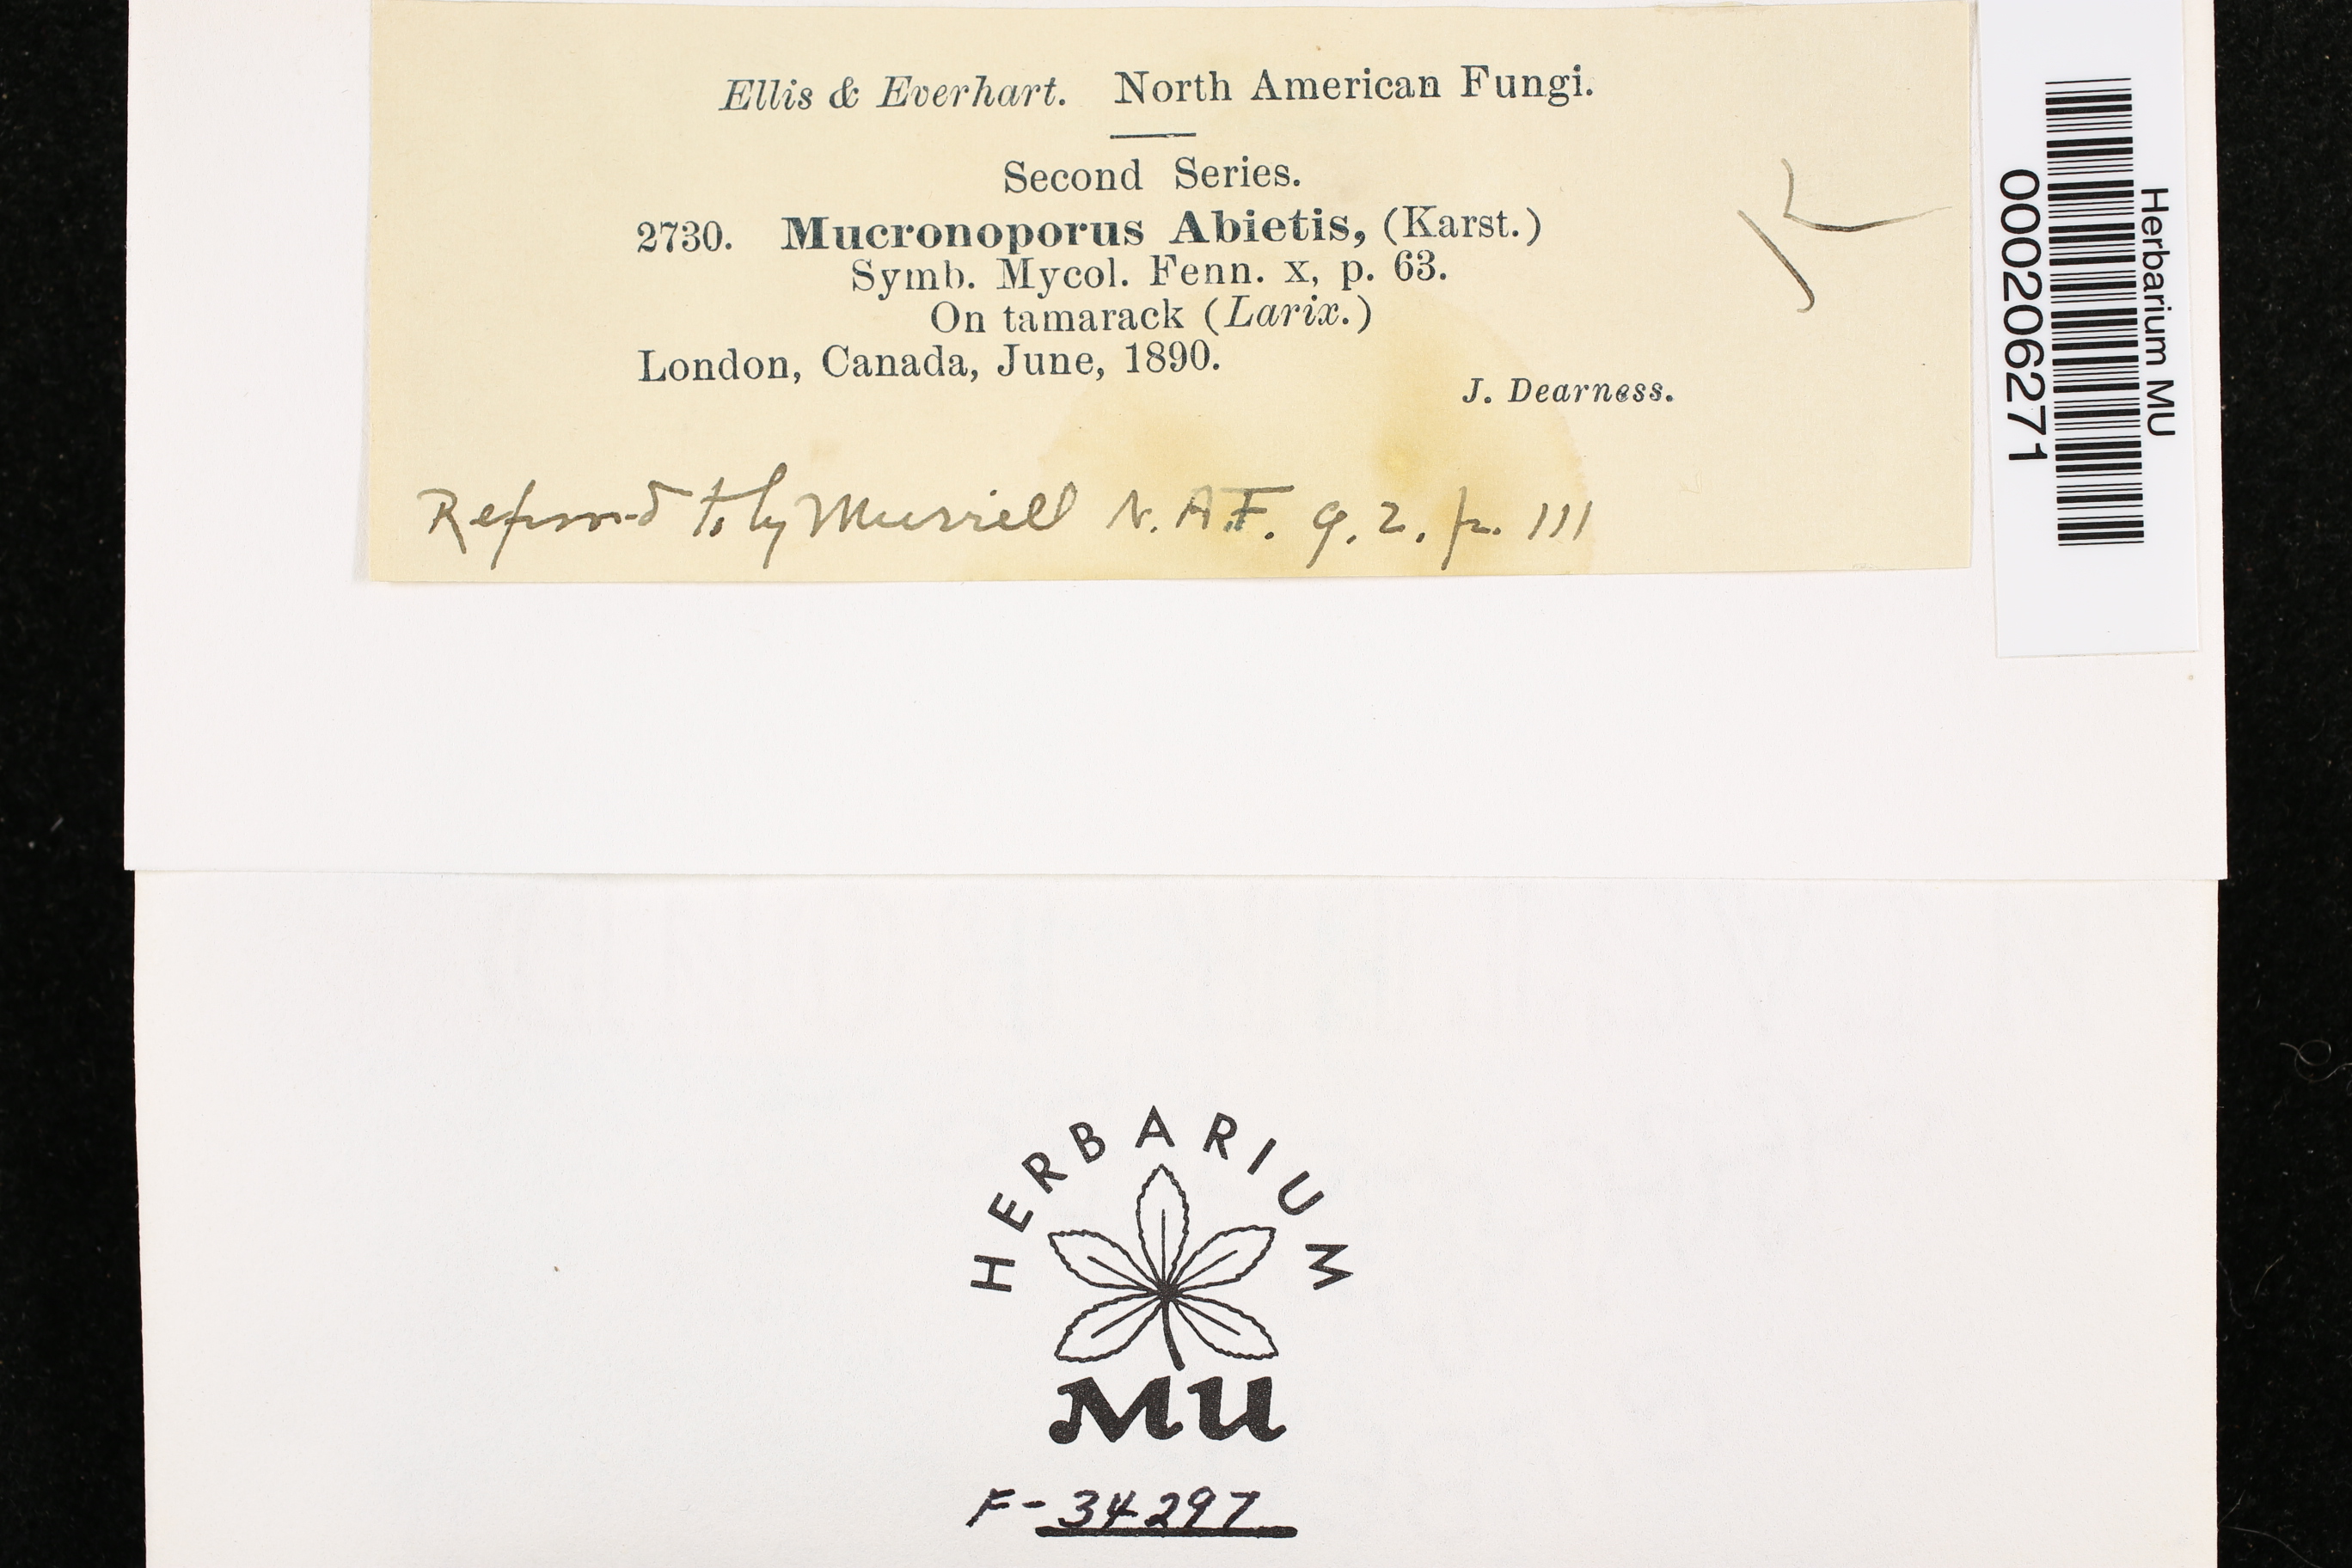 Ellis & Everhart. North American Fungi.
Second Series.
2730. Mucronoporus Abietis, (Karst.)
Symb. Mycol. Fenn. x, p. 63.
On tamarack (Larix.)
London, Canada, June, 1890.
J. Dearness.
to by Murrell N. A. F. 9. 2. p. 111
K
Herbarium MU
000206271
HERBARIUM
MU
F-34297